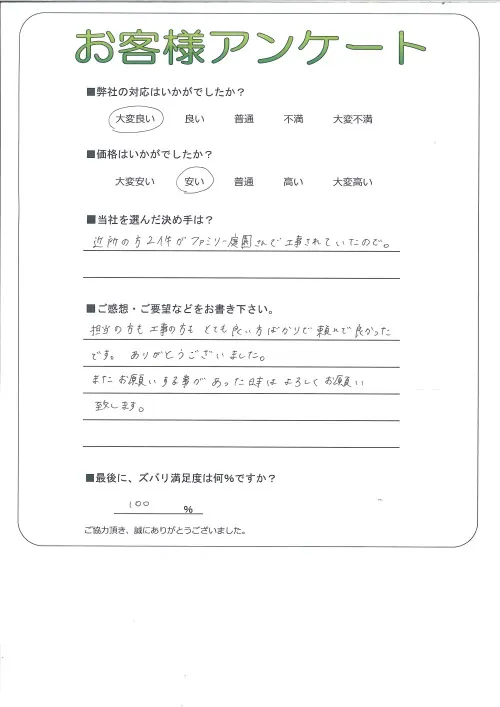 お客様アンケート
■弊社の対応はいかがでしたか？
大変良い 良い 普通 不満 大変不満
■価格はいかがでしたか？
大変安い 安い 普通 高い 大変高い
■当社を選んだ決め手は？
近所の方2件がファミリー庭園さんで工事されていたので。
■ご感想・ご要望などをお書き下さい。
担当の方も工事の方もとても良い方ばかりで頼れて良かった
です。ありがとうございました。
またお願いする事があった時はよろしくお願い
致します。
■最後に、ズバリ満足度は何％ですか？
100 ％
ご協力頂き、誠にありがとうございました。